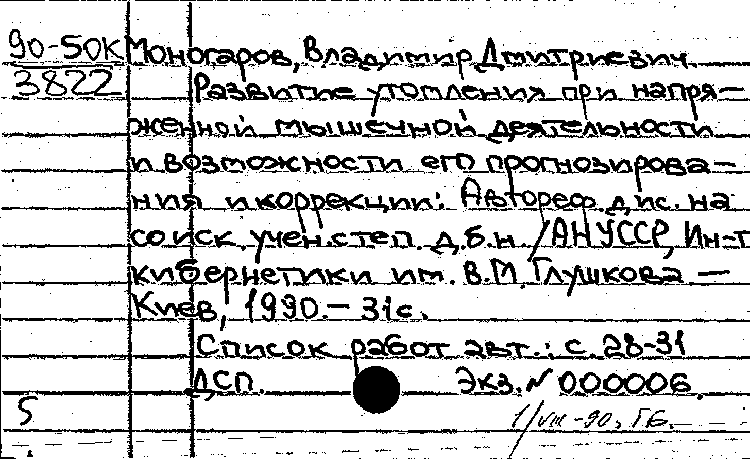 90-50К Моногаров, Владимир Дмитриевич
3822 Развитие утомления при напря-
женной мышечной деятельности
и возможности его прогнозирова-
ния и коррекции: Автореф. дис. на
соиск. учен. степ. д.б.н. /АН УССР, Ин-т
кибернетики им. В.М. Глушкова —
Киев, 1990. — 31с.
Список работ авт.: с. 28-31
ДСП. Экз. № 000006.
5
1/VIII-90. ГБ.